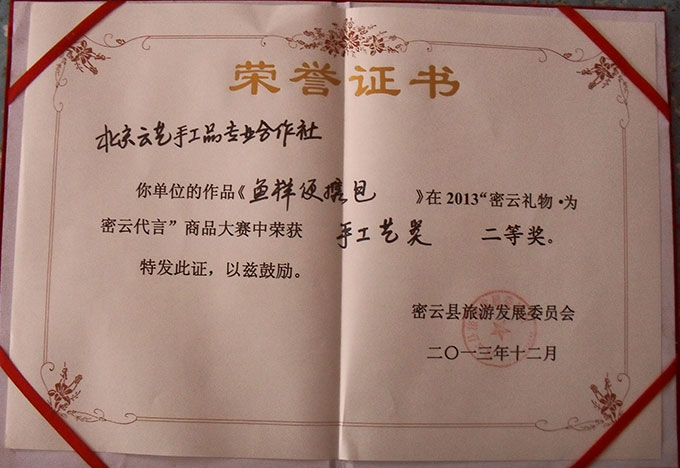 荣誉证书
北京云艺手工品专业合作社
你单位的作品《鱼样便携包》在2013“密云礼物·为
密云代言”商品大赛中荣获 手工艺类 二等奖。
特发此证，以兹鼓励。
密云县旅游发展委员会
二〇一三年十二月